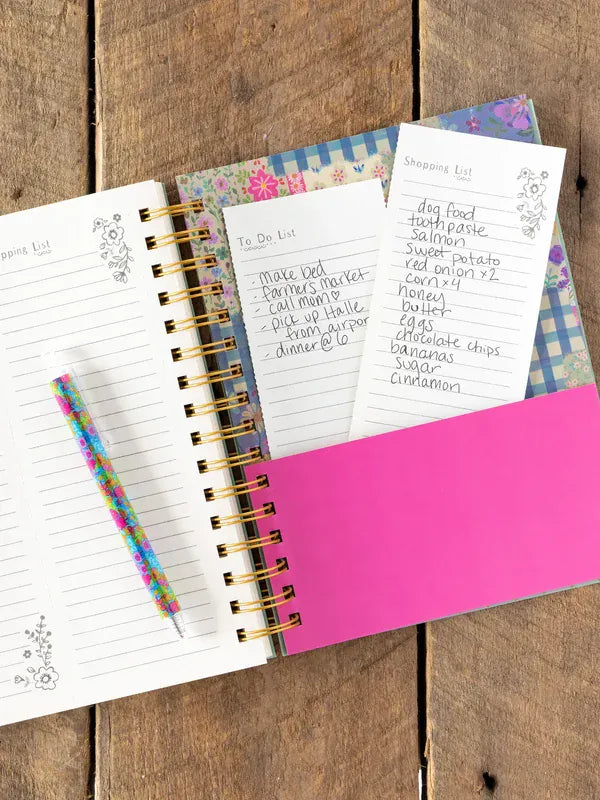 pping List
To Do List
- make bed
- farmers market
- call mom♡
- pick up Halle
from airport
- dinner @ 6
Shopping List
dog food
toothpaste
salmon
sweet potato
red onion x2
corn x4
honey
butter
eggs
chocolate chips
bananas
sugar
cinnamon